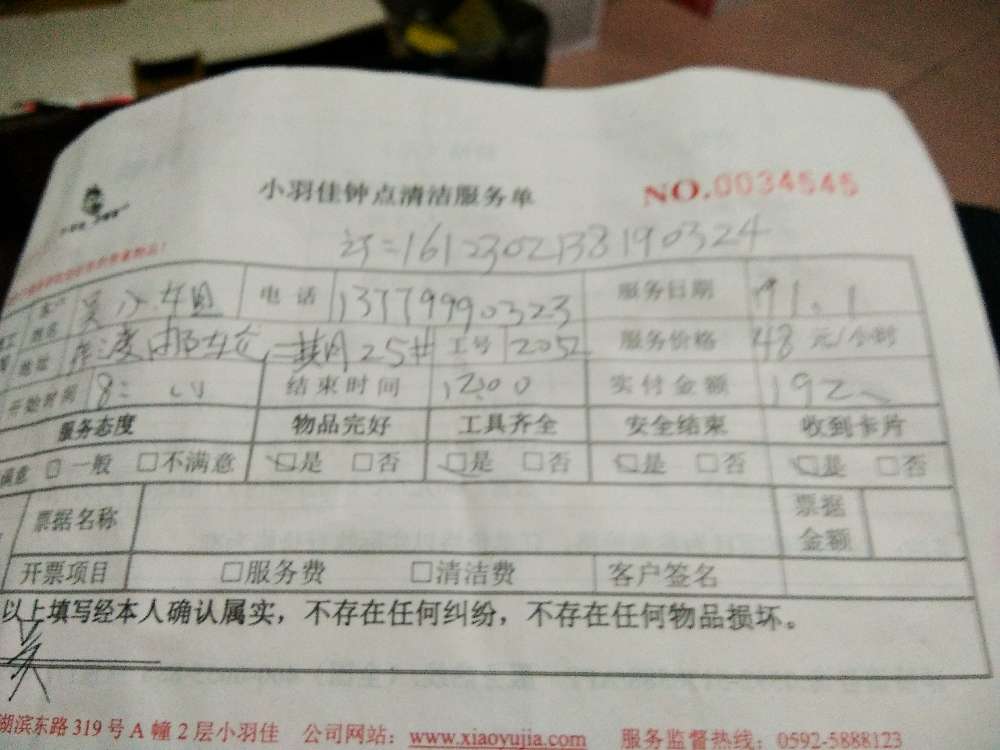 小羽佳钟点清洁服务单 NO.0034545
1612302138190324
姓名 吴小姐 电话 13779990323 服务日期 1.1
地址 25# 工号 2052 服务价格 48元/小时
开始时间 8: 结束时间 12:00 实付金额 192
服务态度 物品完好 工具齐全 安全结束 收到卡片
满意 □一般 □不满意 □是 □否 □是 □否 □是 □否 □是 □否
票据名称 票据金额
开票项目 □服务费 □清洁费 客户签名
以上填写经本人确认属实，不存在任何纠纷，不存在任何物品损坏。
吴
湖滨东路319号A幢2层小羽佳 公司网站：www.xiaoyujia.com 服务监督热线：0592-5888123